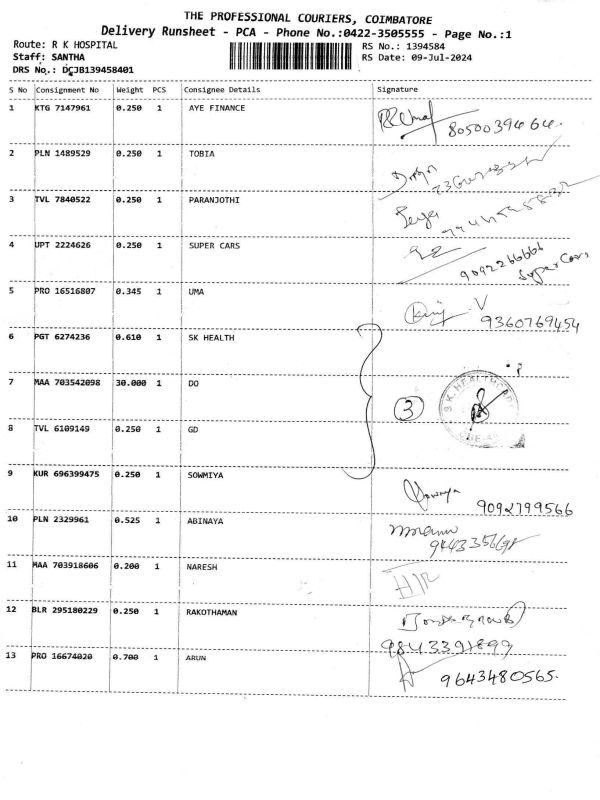 THE PROFESSIONAL COURIERS, COIMBATORE
Delivery Runsheet - PCA - Phone No.:0422-3505555 - Page No.:1
Route: R K HOSPITAL RS No.: 1394584
Staff: SANTHA RS Date: 09-Jul-2024
DRS No.: DCJB139458401
S No Consignment No Weight PCS Consignee Details Signature
1 KTG 7147961 0.250 1 AYE FINANCE
8050039464.
2 PLN 1489529 0.250 1 TOBIA
3 TVL 7840522 0.250 1 PARANJOTHI
4 UPT 2224626 0.250 1 SUPER CARS
9092266666
Super Cars
5 PRO 16516807 0.345 1 UMA
9360769454
6 PGT 6274236 0.610 1 SK HEALTH
7 MAA 703542098 30.000 1 DO
3
8 TVL 6109149 0.250 1 GD
9 KUR 696399475 0.250 1 SOWMIYA
Sowmya 9092799566
10 PLN 2329961 0.525 1 ABINAYA
11 MAA 703918606 0.200 1 NARESH
12 BLR 295180229 0.250 1 RAKOTHAMAN
9843391899
13 PRO 16674020 0.700 1 ARUN
9643480565.